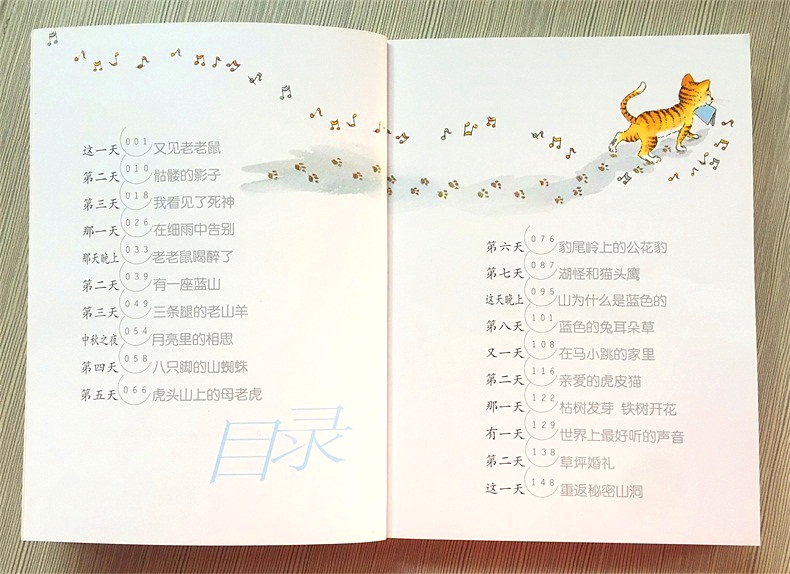 这一天 001 又见老老鼠
第二天 010 骷髅的影子
第三天 018 我看见了死神
那一天 026 在细雨中告别
那天晚上 033 老老鼠喝醉了
第二天 039 有一座蓝山
第三天 049 三条腿的老山羊
中秋之夜 054 月亮里的相思
第四天 058 八只脚的山蜘蛛
第五天 066 虎头山上的母老虎
目录
第六天 076 豹尾岭上的公花豹
第七天 087 湖怪和猫头鹰
这天晚上 095 山为什么是蓝色的
第八天 101 蓝色的兔耳朵草
又一天 108 在马小跳的家里
第二天 116 亲爱的虎皮猫
那一天 122 枯树发芽 铁树开花
有一天 129 世界上最好听的声音
第二天 138 草坪婚礼
这一天 148 重返秘密山洞